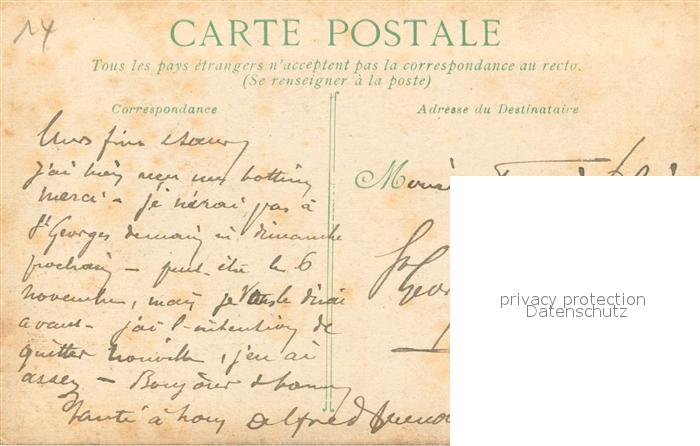 14
CARTE POSTALE
Tous les pays étrangers n'acceptent pas la correspondance au recto.
(Se renseigner à la poste)
Correspondance
Adresse du Destinataire
Chers frère & sœur
j'ai bien reçu mes bottines
merci - je n'irai pas à
St Georges demain ni dimanche
prochain - peut-être le 6
novembre, mais je vous le dirai
avant - j'ai l'intention de
quitter , j'en ai
assez - Bonjour & bonne
santé à tous Alfred
M
St
Geor
privacy protection
Datenschutz